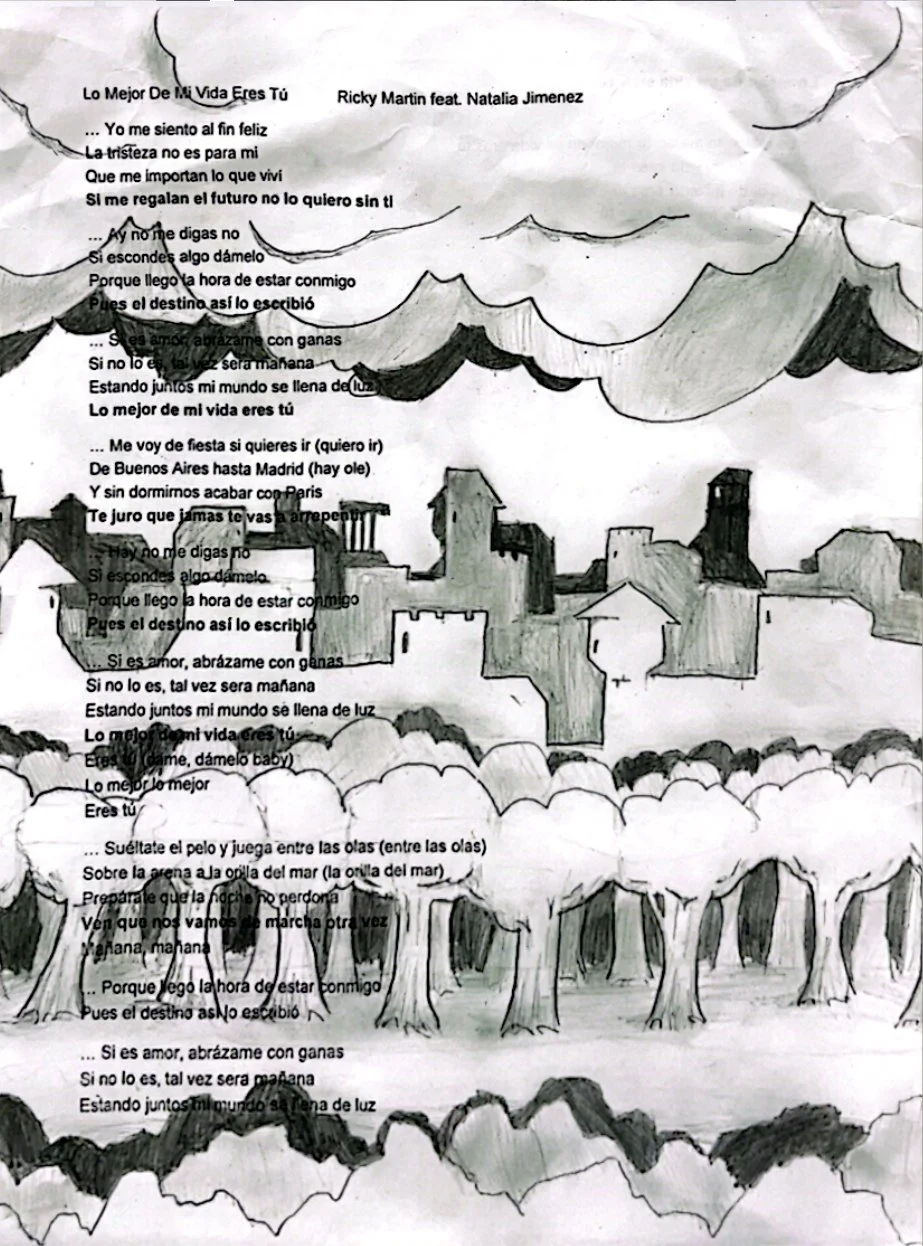 Lo Mejor De Mi Vida Eres Tú Ricky Martin feat. Natalia Jimenez
... Yo me siento al fin feliz
La tristeza no es para mi
Que me importan lo que viví
Si me regalan el futuro no lo quiero sin ti
... Ay no me digas no
Si escondes algo dámelo
Porque llego la hora de estar conmigo
Pues el destino así lo escribió
... Si es amor, abrázame con ganas
Si no lo es, tal vez sera mañana
Estando juntos mi mundo se llena de luz
Lo mejor de mi vida eres tú
... Me voy de fiesta si quieres ir (quiero ir)
De Buenos Aires hasta Madrid (hay ole)
Y sin dormirnos acabar con Paris
Te juro que jamas te vas a arrepentir
... Hay no me digas no
Si escondes algo dámelo
Porque llego la hora de estar conmigo
Pues el destino así lo escribió
... Si es amor, abrázame con ganas
Si no lo es, tal vez sera mañana
Estando juntos mi mundo se llena de luz
Lo mejor de mi vida eres tú
Eres tú (dame, dámelo baby)
Lo mejor lo mejor
Eres tú
... Suéltate el pelo y juega entre las olas (entre las olas)
Sobre la arena a la orilla del mar (la orilla del mar)
Prepárate que la noche no perdona
Ven que nos vamos de marcha otra vez
Mañana, mañana
... Porque llegó la hora de estar conmigo
Pues el destino así lo escribió
... Si es amor, abrázame con ganas
Si no lo es, tal vez sera mañana
Estando juntos mi mundo se llena de luz